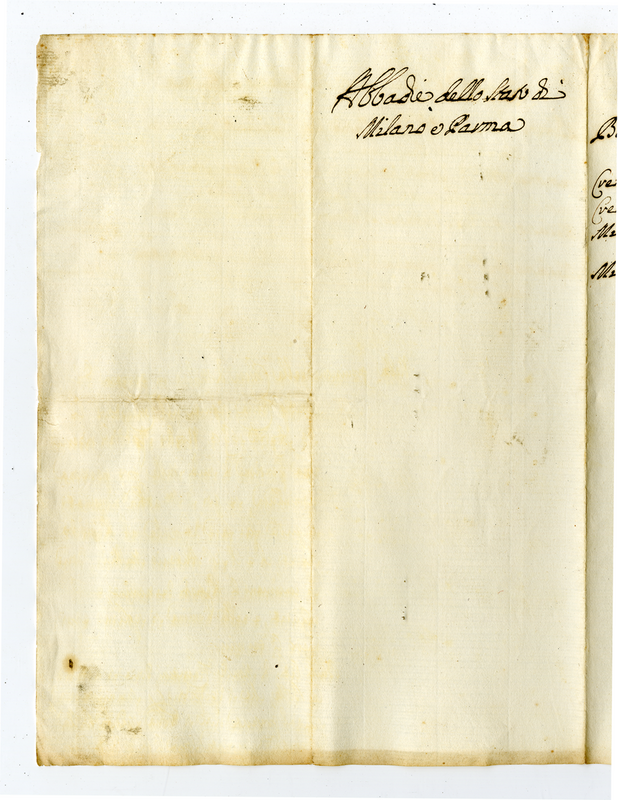 Abbadie dello Stato di
Milano e Parma
B
Cre
Cre
Ma
Ma